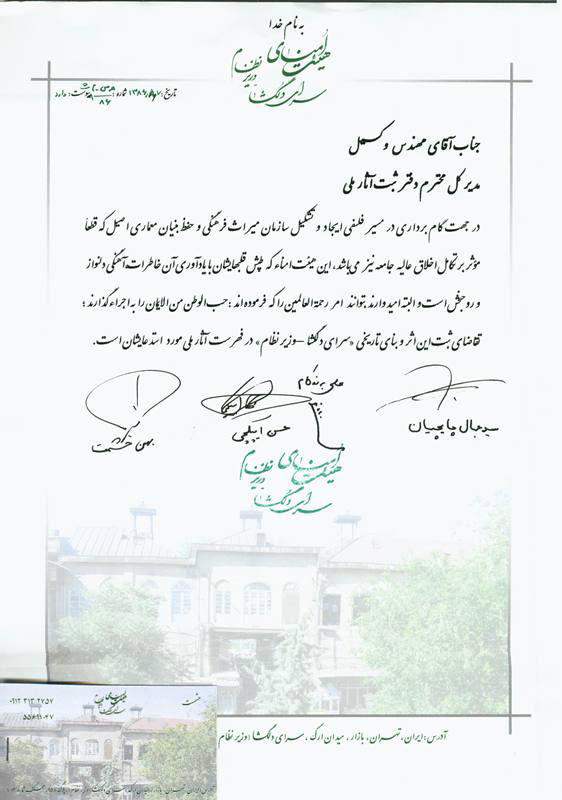 به نام خدا
هیئت امنای
سرای دلگشا وزیر نظام
تاریخ: ۱۳۸۶ شماره: پیوست: دارد
جناب آقای مهندس وکسمل
مدیر کل محترم دفتر ثبت آثار ملی
در جهت گام برداری در مسیر فلسفی ایجاد و تشکیل سازمان میراث فرهنگی و حفظ بنیان معماری اصیل که قطعاً
مؤثر بر تکامل اخلاق عالیه جامعه نیز می باشد، این هیئت امناء که طپش قلبهایشان با یادآوری آن خاطرات آهنگی دلنواز
و روحبخش است و البته امید وارند بتوانند امر رحمة العالمین را که فرموده اند: حب الوطن من الایمان را به اجراء گذارند؛
تقاضای ثبت این اثر و بنای تاریخی «سرای دلگشا - وزیر نظام» در فهرست آثار ملی مورد استدعایشان است.
علی برندکام
سید جمال چایچیان
حسن ایپکچی
بهمن حشمت
هیئت امنای
سرای دلگشا وزیر نظام
حشمت
هیئت امنای
سرای دلگشا وزیر نظام
۰۹۱۲ ۳۱۳ ۲۷۵۷
۵۵۶۹۱۰۴۷
آدرس: ایران، تهران، بازار، میدان ارک، سرای دلگشا (وزیر نظام
آدرس: ایران، تهران، بازار، میدان ارک، سرای دلگشا (وزیر نظام)